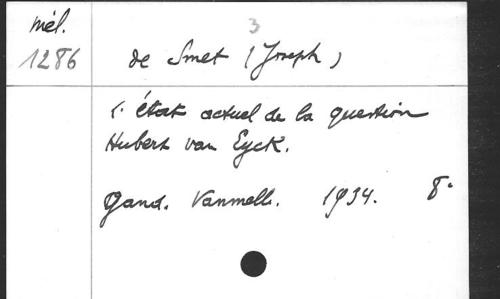 mél.
1286
3
de Smet (Joseph)
L'état actuel de la question
Hubert van Eyck.
Gand. Vanmelle. 1934. 8°